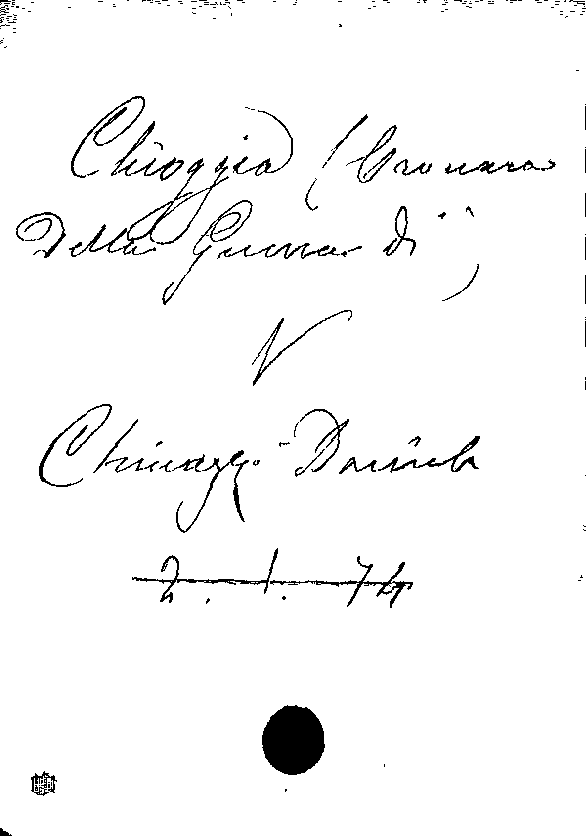 Chioggia (Cronaca
Della Guerra di " )
V
Chinazzi Daniele
2. 1. 74